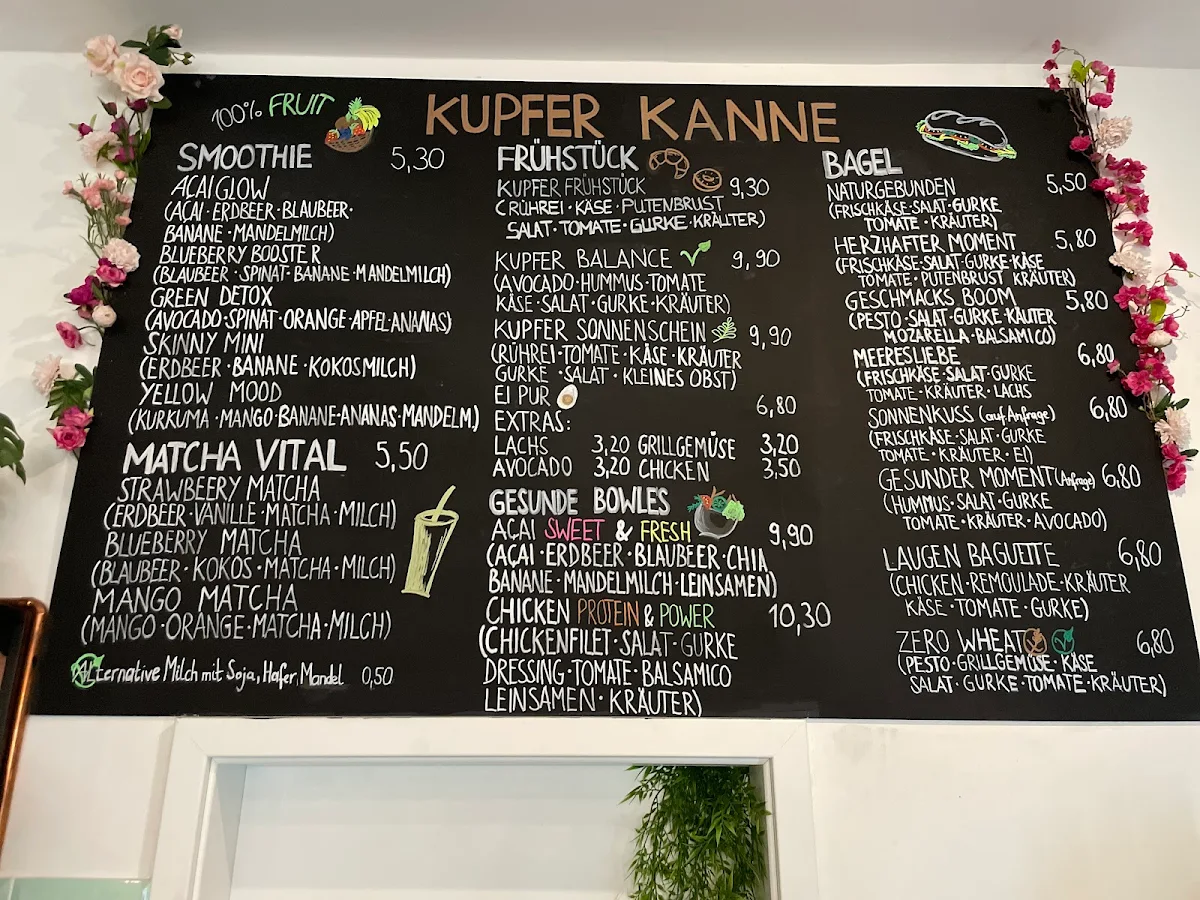 KUPFER KANNE
100% FRUIT
SMOOTHIE 5,30
AÇAI GLOW
(AÇAI·ERDBEER·BLAUBEER·
BANANE·MANDELMILCH)
BLUEBERRY BOOSTER
(BLAUBEER·SPINAT·BANANE·MANDELMILCH)
GREEN DETOX
(AVOCADO·SPINAT·ORANGE·APFEL·ANANAS)
SKINNY MINI
(ERDBEER·BANANE·KOKOSMILCH)
YELLOW MOOD
(KURKUMA·MANGO·BANANE·ANANAS·MANDELM.)
MATCHA VITAL 5,50
STRAWBEERY MATCHA
(ERDBEER·VANILLE·MATCHA·MILCH)
BLUEBERRY MATCHA
(BLAUBEER·KOKOS·MATCHA·MILCH)
MANGO MATCHA
(MANGO·ORANGE·MATCHA·MILCH)
Alternative Milch mit Soja, Hafer, Mandel 0,50
FRÜHSTÜCK
KUPFER FRÜHSTÜCK 9,30
(RÜHREI·KÄSE·PUTENBRUST
SALAT·TOMATE·GURKE·KRÄUTER)
KUPFER BALANCE 9,90
(AVOCADO·HUMMUS·TOMATE
KÄSE·SALAT·GURKE·KRÄUTER)
KUPFER SONNENSCHEIN 9,90
(RÜHREI·TOMATE·KÄSE·KRÄUTER
GURKE·SALAT·KLEINES OBST)
EI PUR 6,80
EXTRAS:
LACHS 3,20 GRILLGEMÜSE 3,20
AVOCADO 3,20 CHICKEN 3,50
GESUNDE BOWLES
AÇAI SWEET & FRESH 9,90
(AÇAI·ERDBEER·BLAUBEER·CHIA
BANANE·MANDELMILCH·LEINSAMEN)
CHICKEN PROTEIN & POWER 10,30
(CHICKENFILET·SALAT·GURKE
DRESSING·TOMATE·BALSAMICO
LEINSAMEN·KRÄUTER)
BAGEL
NATURGEBUNDEN 5,50
(FRISCHKÄSE·SALAT·GURKE
TOMATE·KRÄUTER)
HERZHAFTER MOMENT 5,80
(FRISCHKÄSE·SALAT·GURKE·KÄSE
TOMATE·PUTENBRUST KRÄUTER)
GESCHMACKS BOOM 5,80
(PESTO·SALAT·GURKE·KÄUTER
MOZARELLA·BALSAMICO)
MEERESLIEBE 6,80
(FRISCHKÄSE·SALAT·GURKE
TOMATE·KRÄUTER·LACHS
SONNENKUSS (auf Anfrage) 6,80
(FRISCHKÄSE·SALAT·GURKE
TOMATE·KRÄUTER·EI)
GESUNDER MOMENT (Anfrage) 6,80
(HUMMUS·SALAT·GURKE
TOMATE·KRÄUTER·AVOCADO)
LAUGEN BAGUETTE 6,80
(CHICKEN·REMOULADE·KRÄUTER
KÄSE·TOMATE·GURKE)
ZERO WHEAT 6,80
(PESTO·GRILLGEMÜSE·KÄSE
SALAT·GURKE·TOMATE·KRÄUTER)